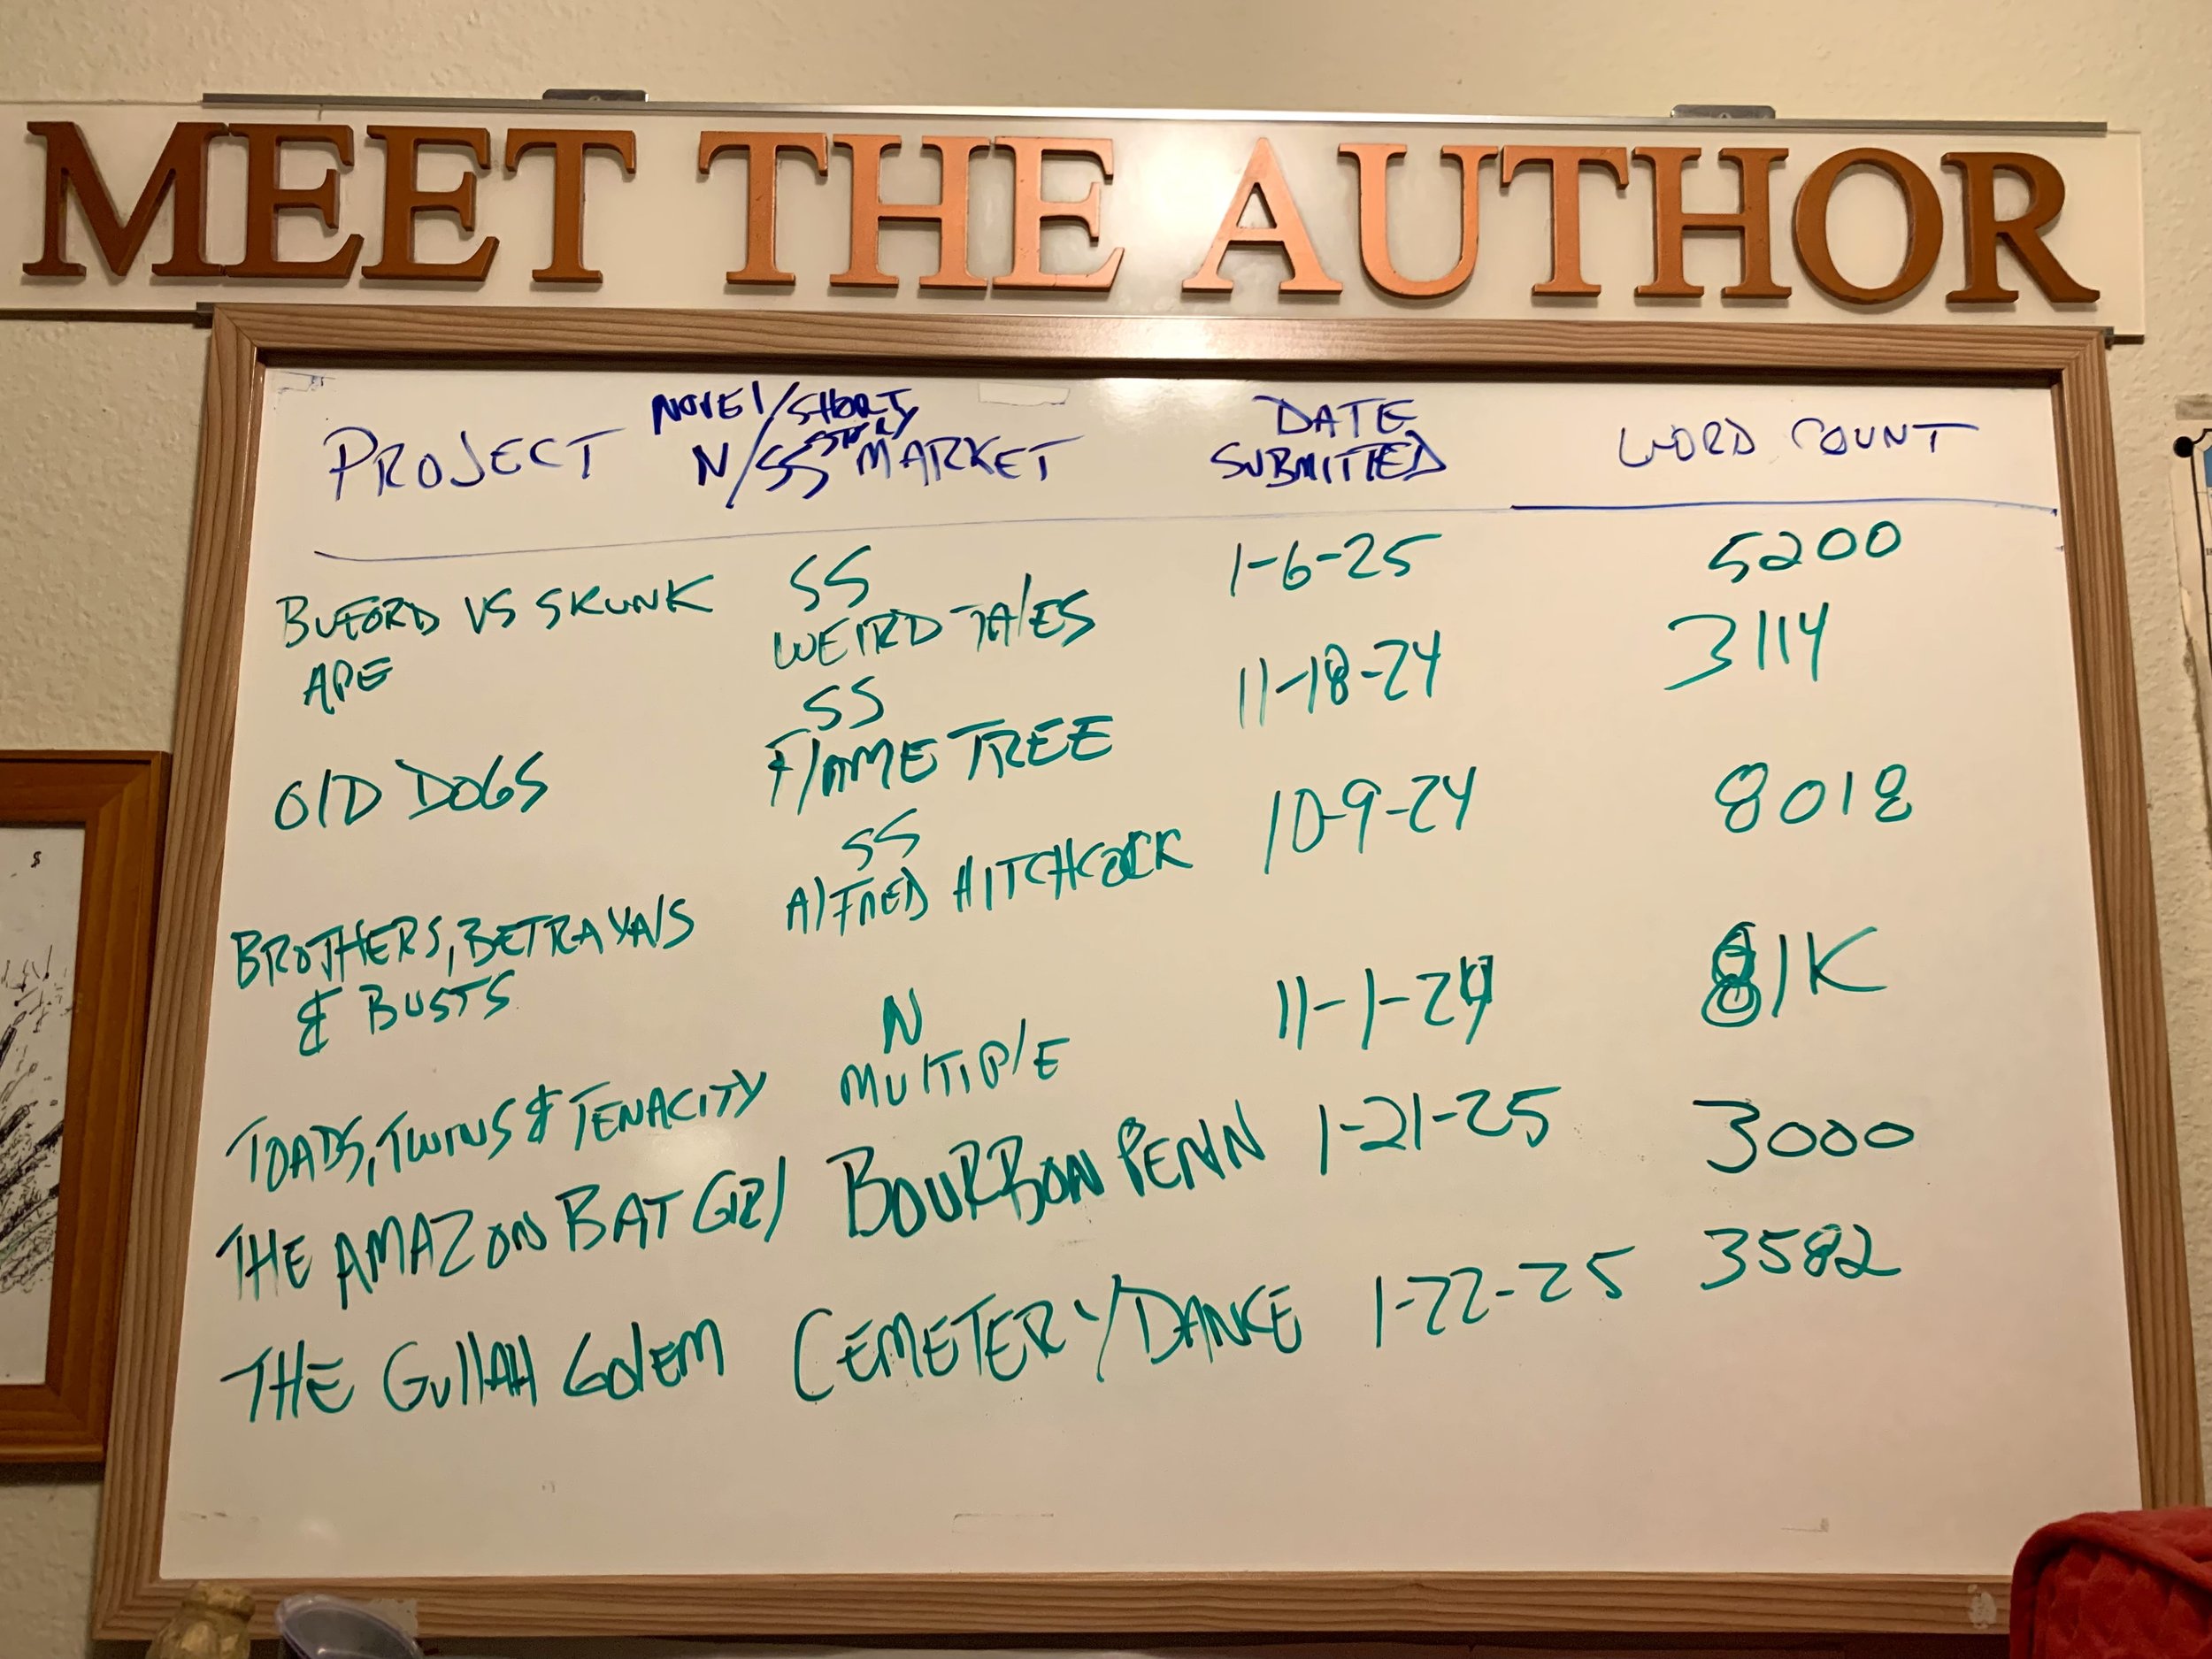 MEET THE AUTHOR
PROJECT NOVEl/SHORT STORY N/SS MARKET DATE SUBMITTED WORD COUNT
BUFORD VS SKUNK APE SS WEIRD TAlES 1-6-25 5200
OlD DOGS SS FlAME TREE 11-18-24 3114
BROTHERS, BETRAYAlS & BUSTS SS AlFRED HITCHCOCK 10-9-24 8018
TOADS, TWINS & TENACITY N MUlTIPlE 11-1-24 81K
THE AMAZON BAT GIRl BOURBON PENN 1-21-25 3000
THE GUllAH GOlEM CEMETERY/DANCE 1-22-25 3582